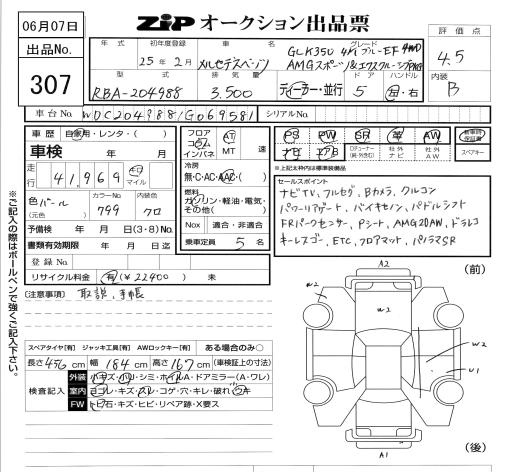 06月07日
出品No.
307
ZIP オークション出品票
評価点
4.5
内装
B
年式 初年度登録 車名 グレード
25年2月 メルセデスベンツ GLK350 4M ブルーEF 4WD
AMGスポーツ&エクスクルーシブPKG
型式 排気量 ドア ハンドル
RBA-204988 3,500 ディーラー・並行 5 左・右
車台No. WDC2049881G069581 シリアルNo.
車歴 自家用・レンタ・( )
車検 年 月
走行 41,969 キロ マイル
色 パール カラーNo. 799 内装色 クロ
(元色)
予備検 年 月 日(3・8)No.
書類有効期限 年 月 日迄
登録No.
リサイクル料金 有(¥22400) 未
フロア
コラム
インパネ
AT
MT 速
冷房
無・C・AC・AAC・( )
燃料
ガソリン・軽油・電気・
その他( )
Nox 適合・非適合
乗車定員 5 名
PS PW SR 革 AW 新車時保証書
ナビ エアB 社外ナビ 社外AW スペアキー
※上記太枠内は標準装備品
セールスポイント
ナビTV、フルセグ、Bカメラ、クルコン
パワーリアゲート、バイキセノン、パドルシフト
FRパークセンサー、Pシート、AMG20AW、ドラレコ
キーレスゴー、ETC、フロアマット、パノラマSR
(注意事項) 取説、手帳
※ご記入の際はボールペンで強くご記入下さい。
スペアタイヤ[有] ジャッキ工具[有] AWロックキー[有] ある場合のみ○
長さ 456 cm 幅 184 cm 高さ 167 cm (車検証上の寸法)
検査記入
外装 小キズ・凹・シミ・ホイルA・ドアミラー(A・ワレ)
室内 ヨゴレ・キズ・スレ・コゲ・穴・キレ・破れ・ウキ
FW トビ石・キズ・ヒビ・リペア跡・X要ス
A2
(前)
W2
W2
W2
U1
A1
(後)